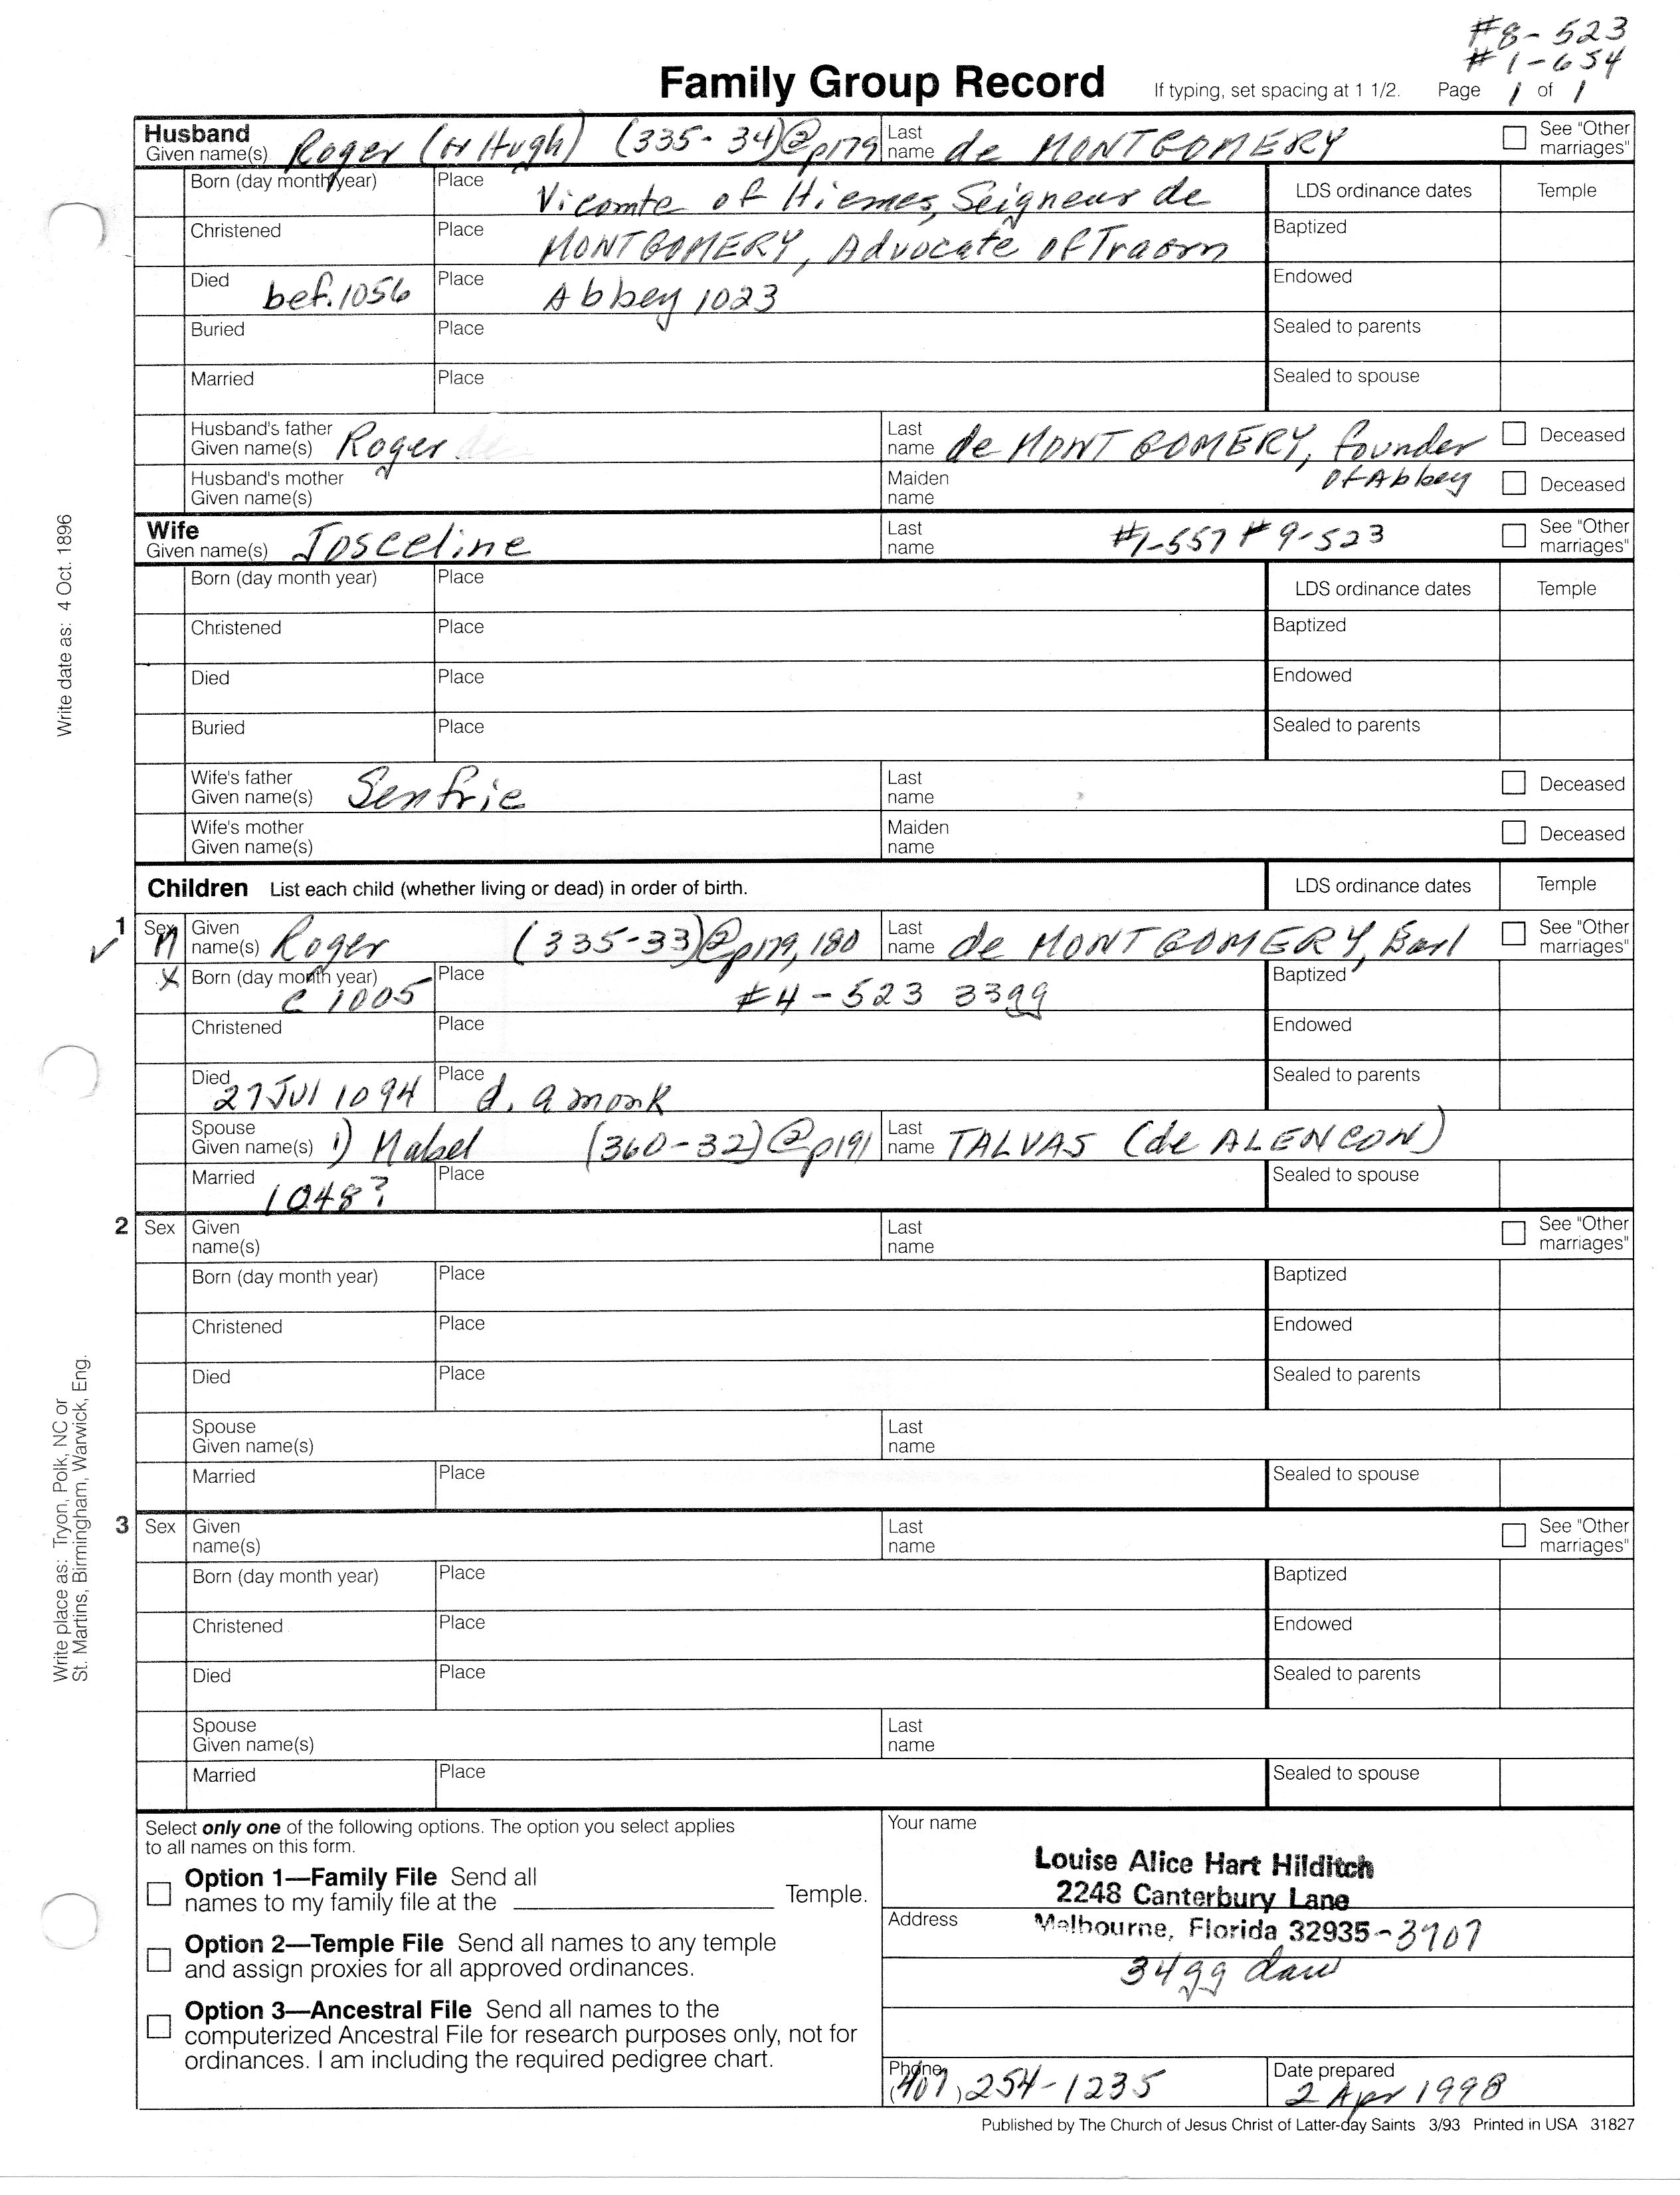 #8-523
#1-654
Family Group Record If typing, set spacing at 1 1/2. Page 1 of 1
Husband Given name(s) Roger (or Hugh) (335-34)@p179 Last name de MONTGOMERY See "Other marriages"
Born (day month year) Place Vicomte of Hiemes, Seigneur de LDS ordinance dates Temple
Christened Place MONTGOMERY, Advocate of Traorn Baptized
Died bef. 1056 Place Abbey 1023 Endowed
Buried Place Sealed to parents
Married Place Sealed to spouse
Husband's father Given name(s) Roger Last name de MONTGOMERY, founder of Abbey Deceased
Husband's mother Given name(s) Maiden name Deceased
Wife Given name(s) Josceline Last name #1-557 # 9-523 See "Other marriages"
Born (day month year) Place LDS ordinance dates Temple
Christened Place Baptized
Died Place Endowed
Buried Place Sealed to parents
Wife's father Given name(s) Senfrie Last name Deceased
Wife's mother Given name(s) Maiden name Deceased
Children List each child (whether living or dead) in order of birth. LDS ordinance dates Temple
1 Sex M Given name(s) Roger (335-33)@p179,180 Last name de MONTGOMERY, Earl See "Other marriages"
X Born (day month year) c 1005 Place #4-523 33gg Baptized
Christened Place Endowed
Died 27 Jul 1094 Place d. a monk Sealed to parents
Spouse Given name(s) 1) Mabel (360-32)@p191 Last name TALVAS (de ALENCON)
Married 1048? Place Sealed to spouse
2 Sex Given name(s) Last name See "Other marriages"
Born (day month year) Place Baptized
Christened Place Endowed
Died Place Sealed to parents
Spouse Given name(s) Last name
Married Place Sealed to spouse
3 Sex Given name(s) Last name See "Other marriages"
Born (day month year) Place Baptized
Christened Place Endowed
Died Place Sealed to parents
Spouse Given name(s) Last name
Married Place Sealed to spouse
Write date as: 4 Oct. 1896
Write place as: Tryon, Polk, NC or
St. Martins, Birmingham, Warwick, Eng.
Select only one of the following options. The option you select applies
to all names on this form.
Option 1—Family File Send all
names to my family file at the Temple.
Option 2—Temple File Send all names to any temple
and assign proxies for all approved ordinances.
Option 3—Ancestral File Send all names to the
computerized Ancestral File for research purposes only, not for
ordinances. I am including the required pedigree chart.
Your name
Louise Alice Hart Hilditch
2248 Canterbury Lane
Address Melbourne, Florida 32935-3707
34gg dau
Phone (407) 254-1235 Date prepared 2 Apr 1998
Published by The Church of Jesus Christ of Latter-day Saints 3/93 Printed in USA 31827